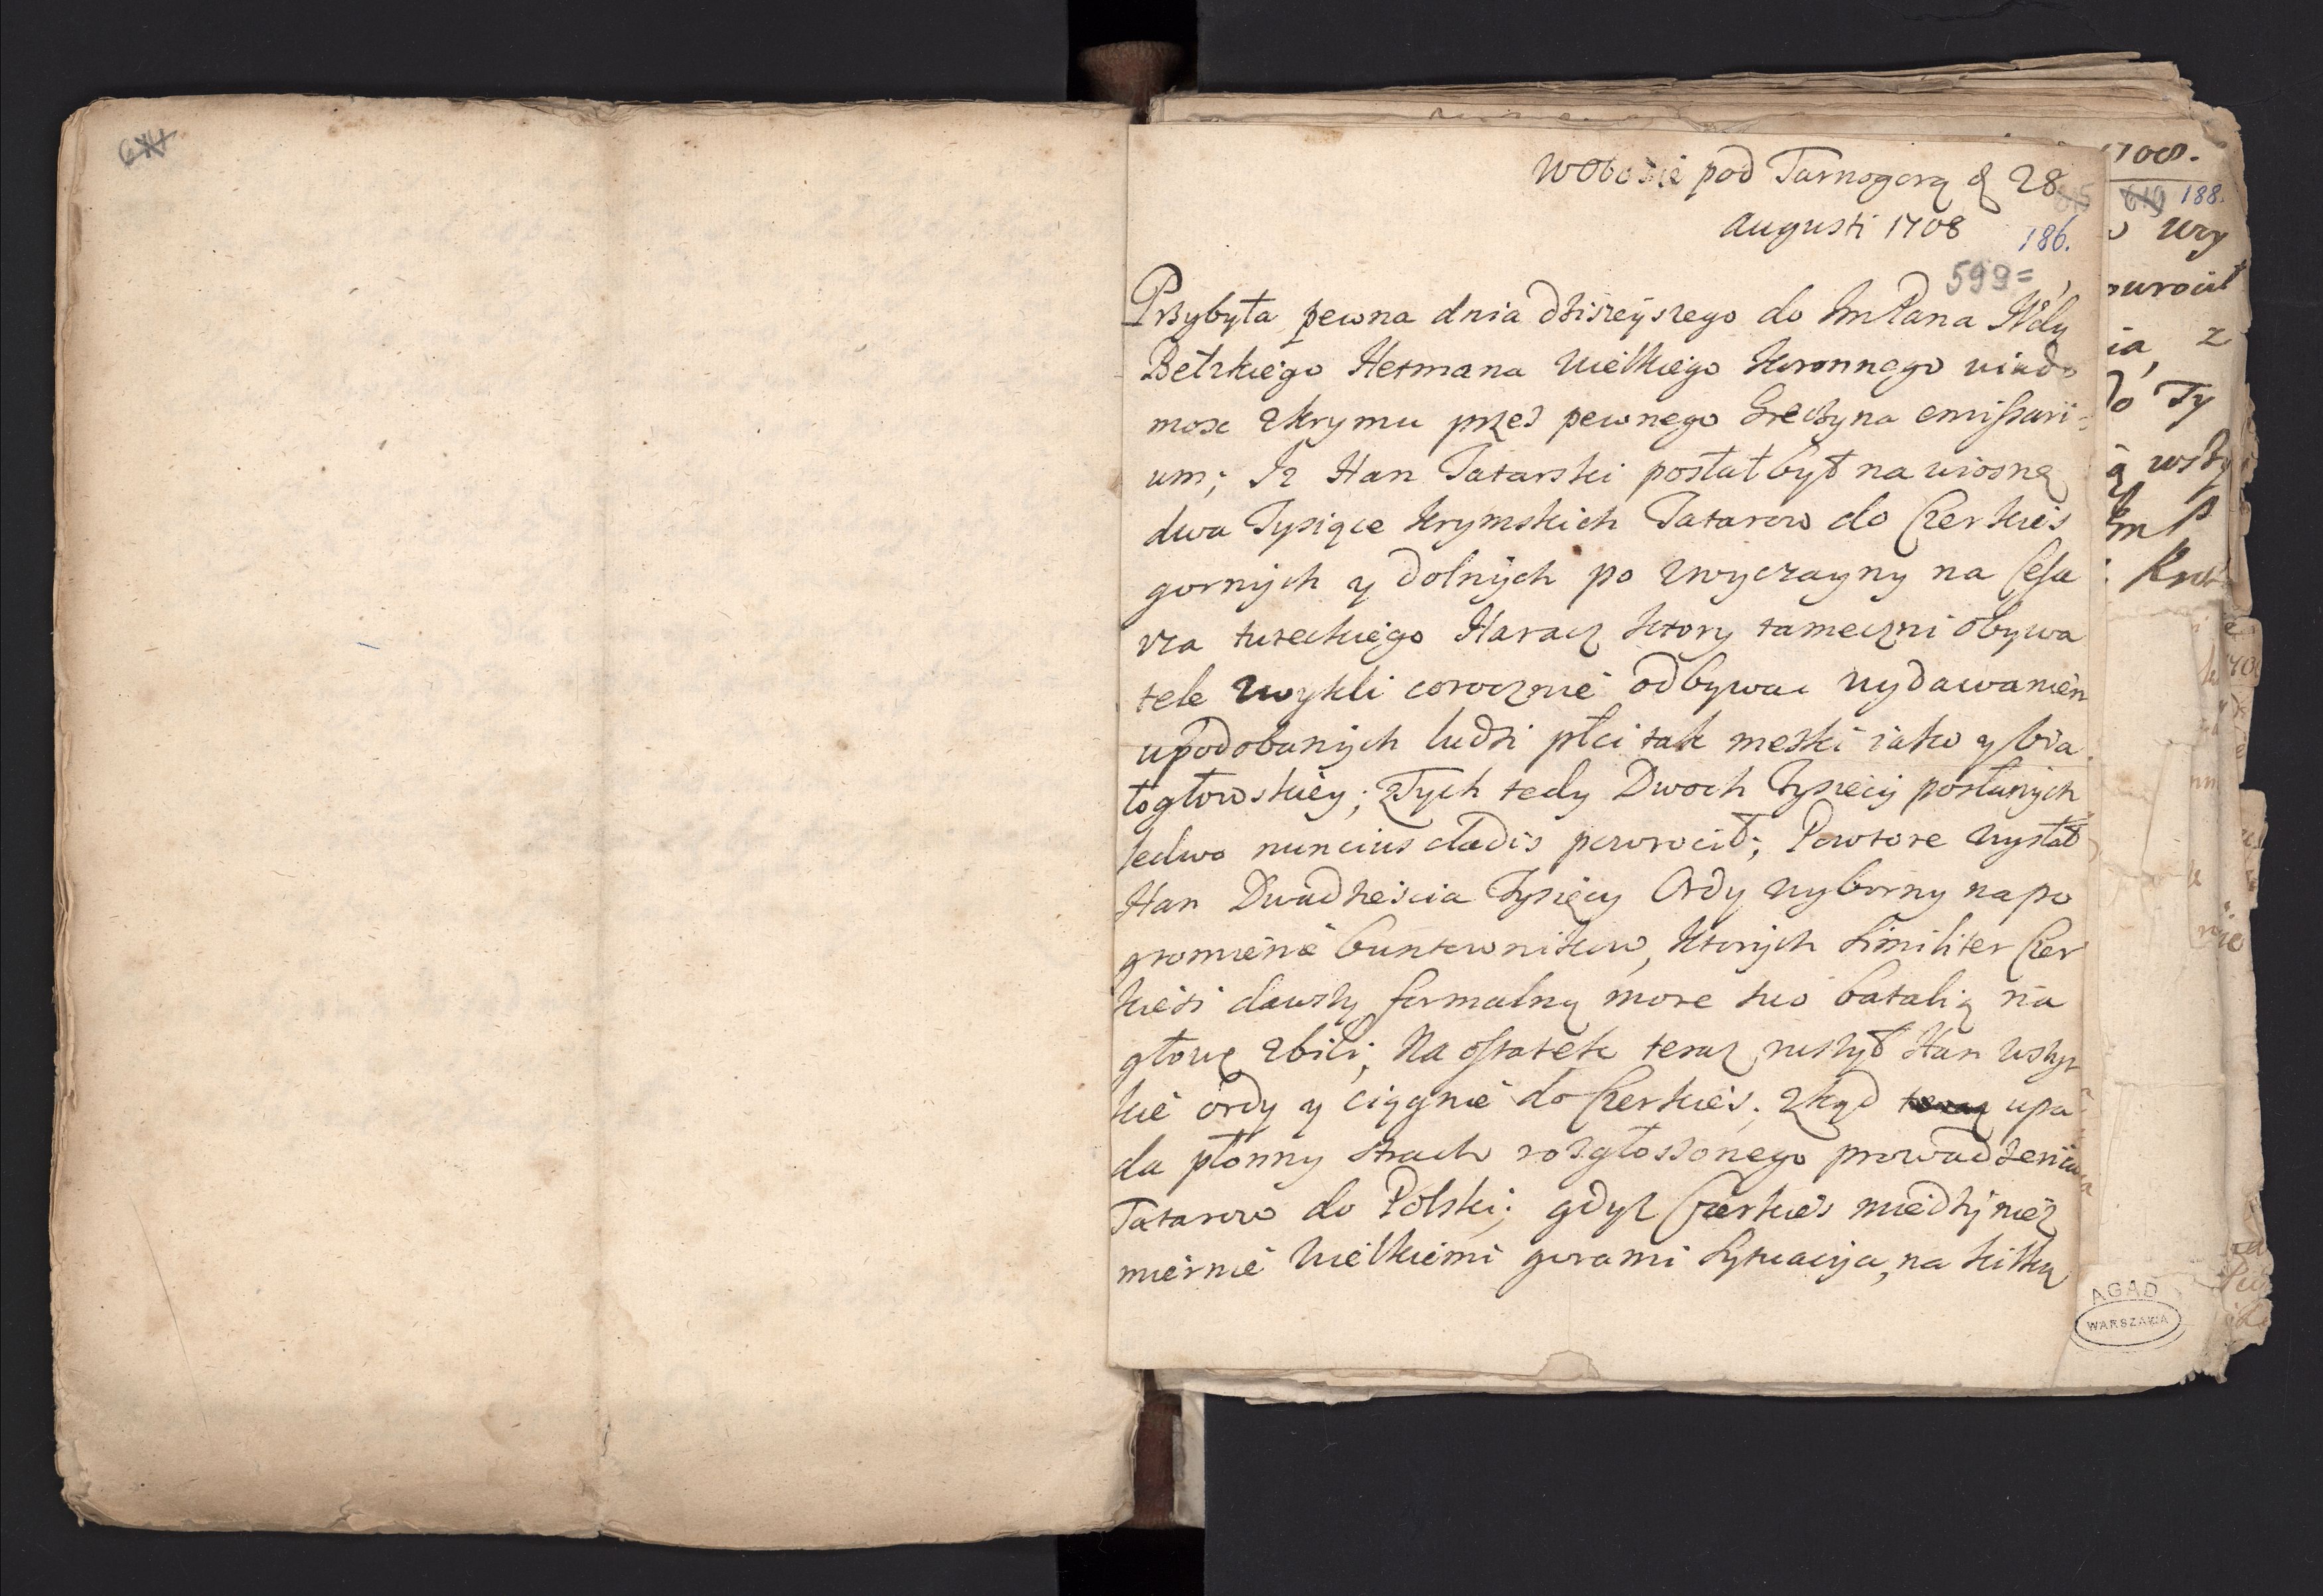 614
W Obozie pod Tarnogorą d 28
Augusti 1708
186.
599=
Przybyła pewna dnia dzisieyszego do Jm Pana Wdy
Bełzkiego Hetmana Wielkiego Koronnego wiado
mosc z Krymu przez pewnego Greczyna emissari=
um; Iz Han Tatarski posłał był na wiosnę
dwa Tysiące Krymskich Tatarow do Czerkies
gornych y dolnych po zwyczayny na Cesa
rza tureckiego Haracz ktory tameczni obywa
tele zwykli corocznie odbywac wydawaniem
upodobanych ludzi płci tak meski iako y bia
łogłowskiey; Z Tych tedy Dwoch Tysięcy posłanych
ledwo nuncius cladis powrocił; Powtore wysłał
Han Dwadziescia Tysięcy Ordy wyborny na po
gromienie buntownikow, ktorych similiter Czer
kiesi dawszy formalną more suo batalią na
głowę zbili; Na ostatek teraz ruszył Han wszys
kie ordy y ciągnie do Czerkies. Zkąd upa
da płonny strach rozgłoszonego prowadzenia
Tatarow do Polski; gdyz Czerkies miedzy niez
miernie Wielkiemi gorami sytuacyja, na kilką
1708.
619 188.
AGAD
WARSZAWA